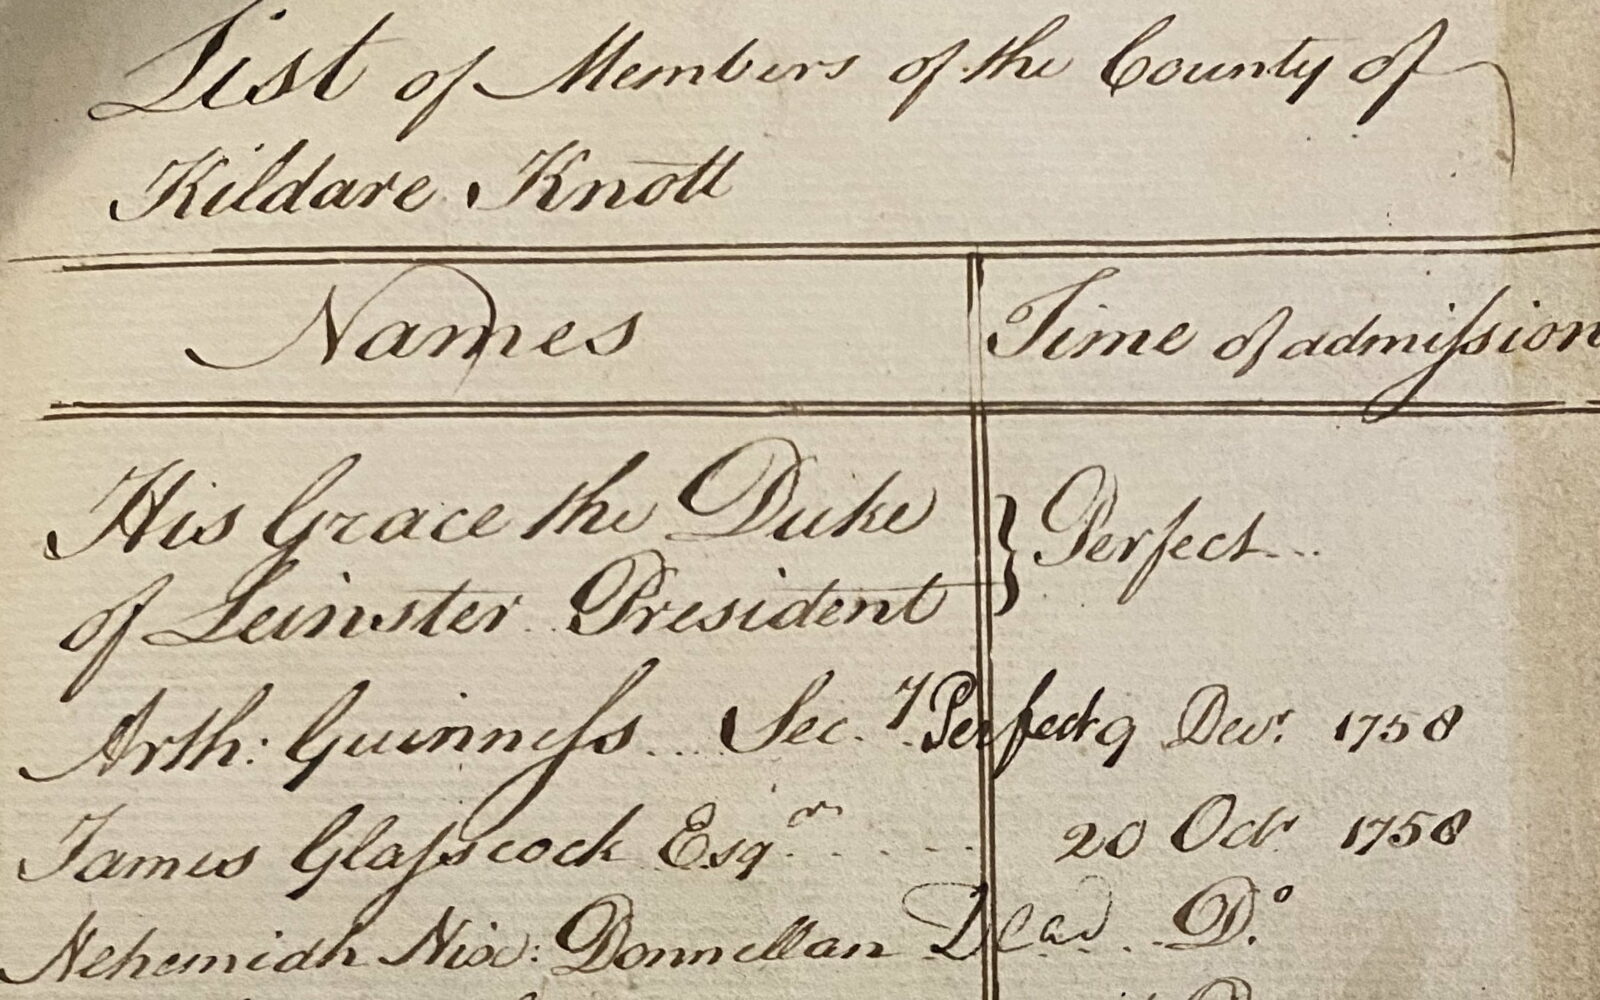 List of Members of the County of
Kildare Knott
Names Time of admission
His Grace the Duke
of Leinster President } Perfect...
Arth: Guinness... Sec.y Perfect 9 Decr. 1758
James Glasscock Esqr. .... 20 Octr 1758
Nehemiah Nix: Donnellan Dead... Do